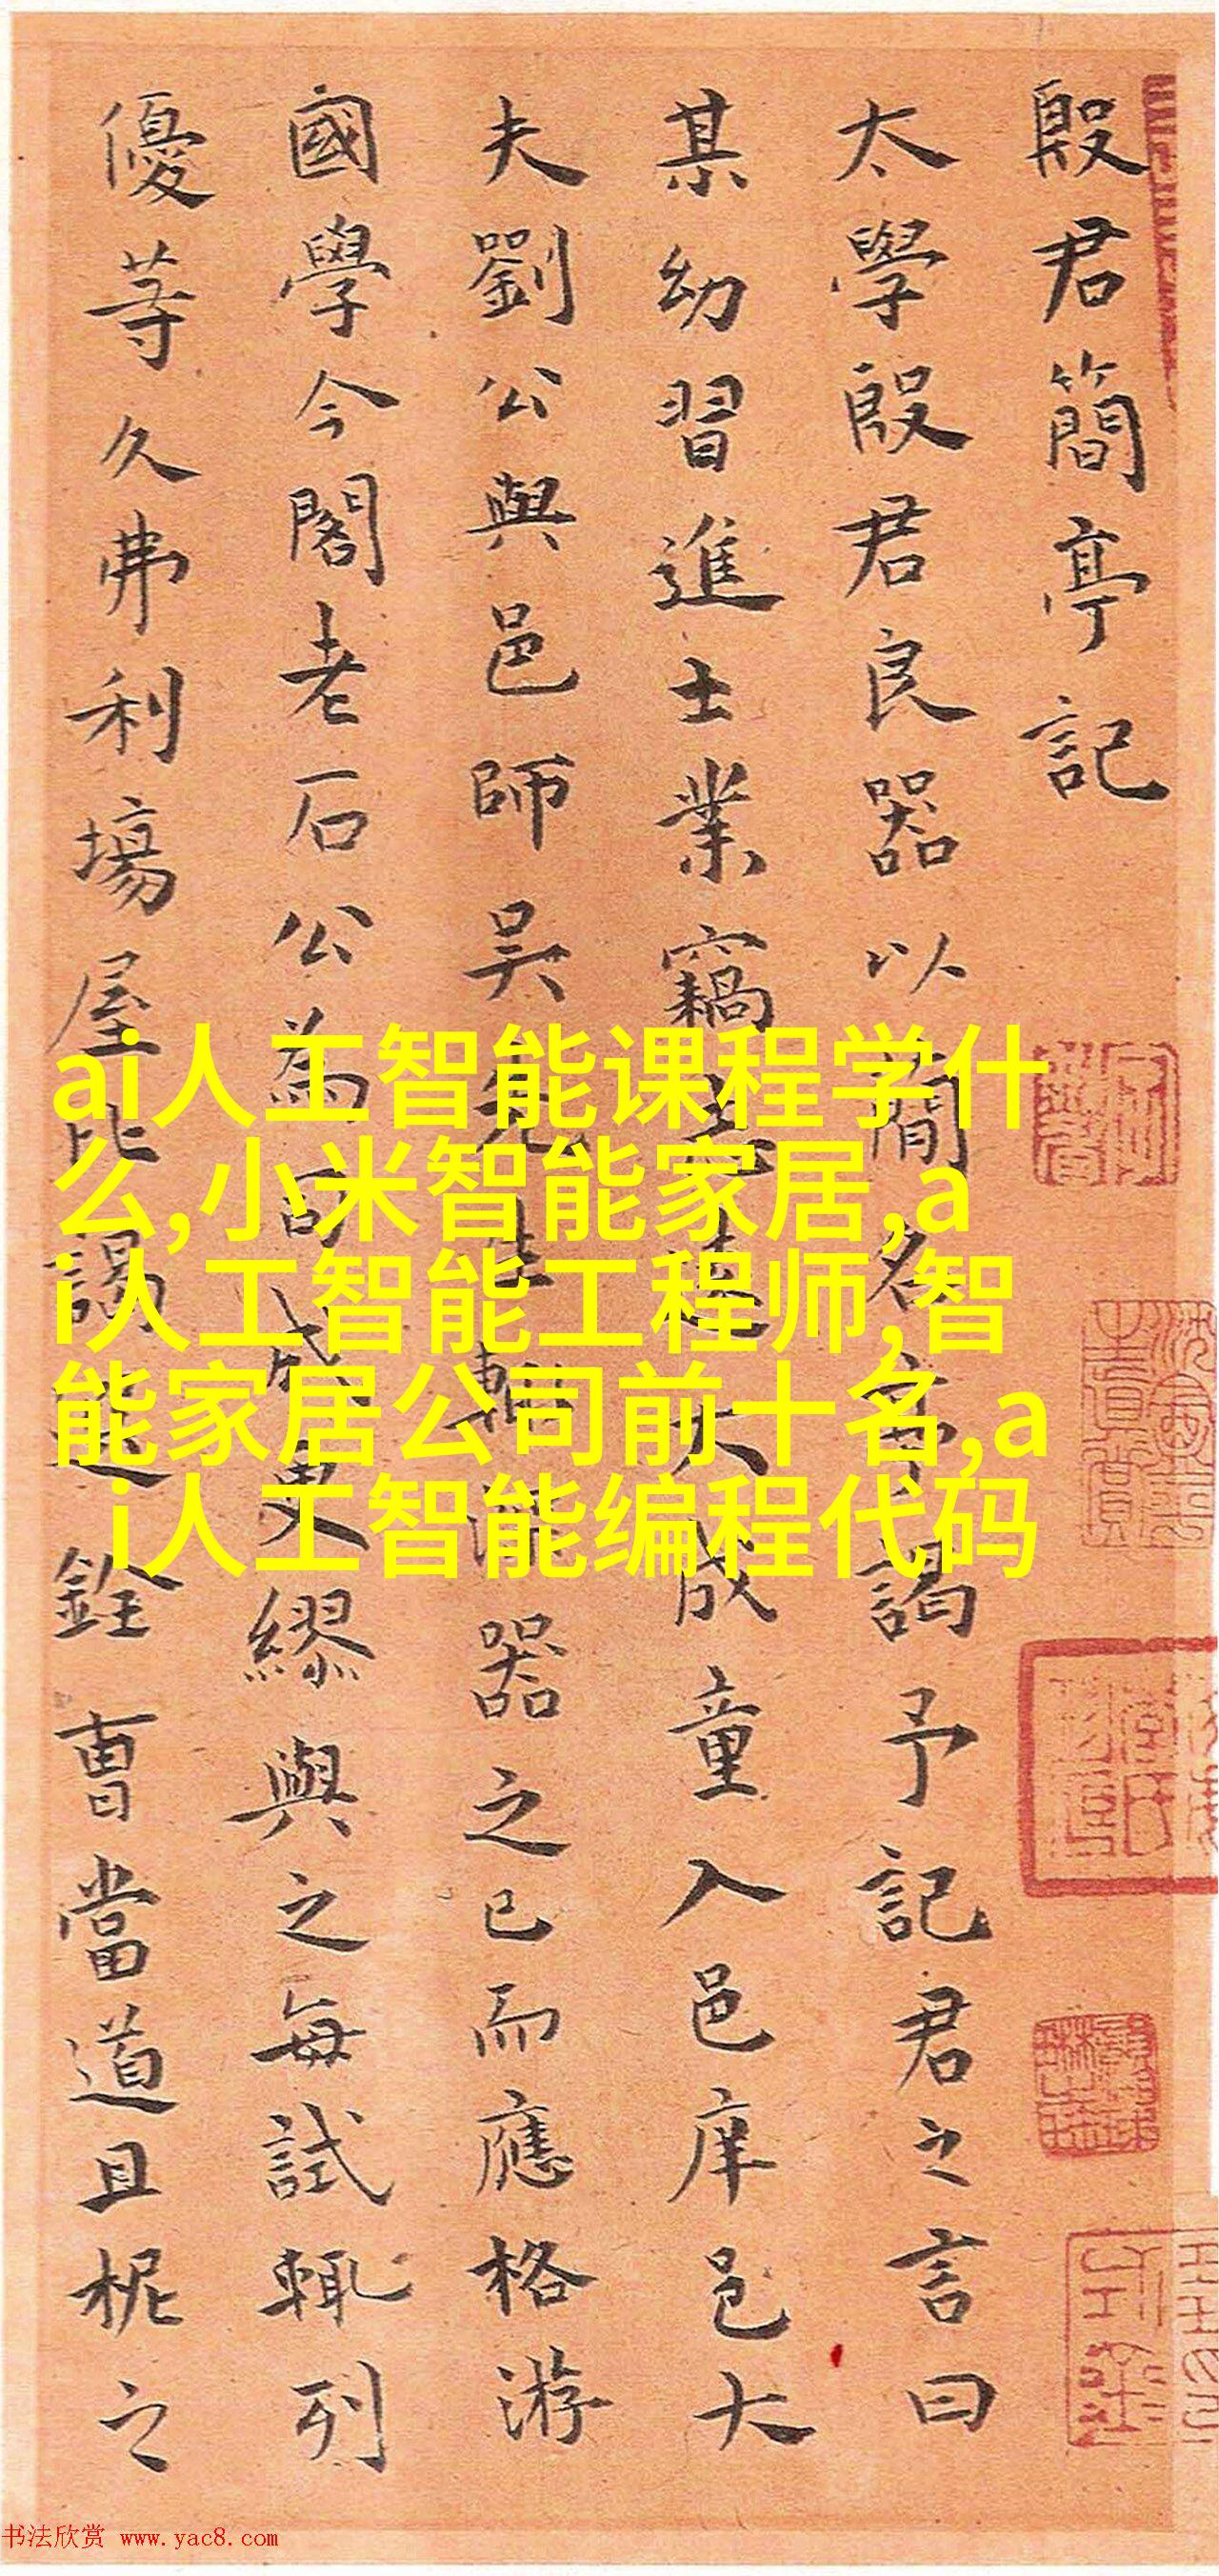 殷君簡亭記
太學殷君良器以簡名亭謁予記君之言曰
某幼習進士業竊志遠大成童入邑庠邑大
夫劉公與邑師吳先生輒器之已而應格游
國學今閣老石公為司成更繆與之每試輒列
優等久弗利場屋比謁選銓曹當道且柅之
ai人工智能课程学什
么,小米智能家居,a
i人工智能工程师,智
能家居公司前十名,a
i人工智能编程代码
书法欣赏 www.yac8.com